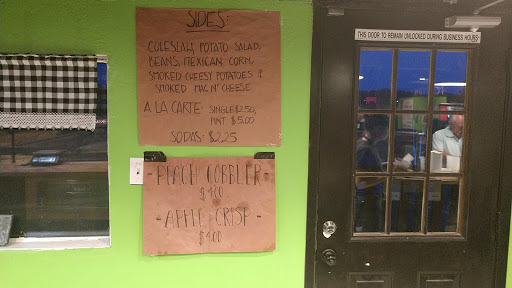 SIDES:
COLESLAW, POTATO SALAD,
BEANS, MEXICAN CORN,
SMOKED CHEESY POTATOES &
SMOKED MAC N' CHEESE
A LA CARTE: SINGLE $2.50,
PINT $5.00
SODAS: $2.25
THIS DOOR TO REMAIN UNLOCKED DURING BUSINESS HOURS
- PEACH COBBLER -
$4.00
- APPLE CRISP -
$4.00